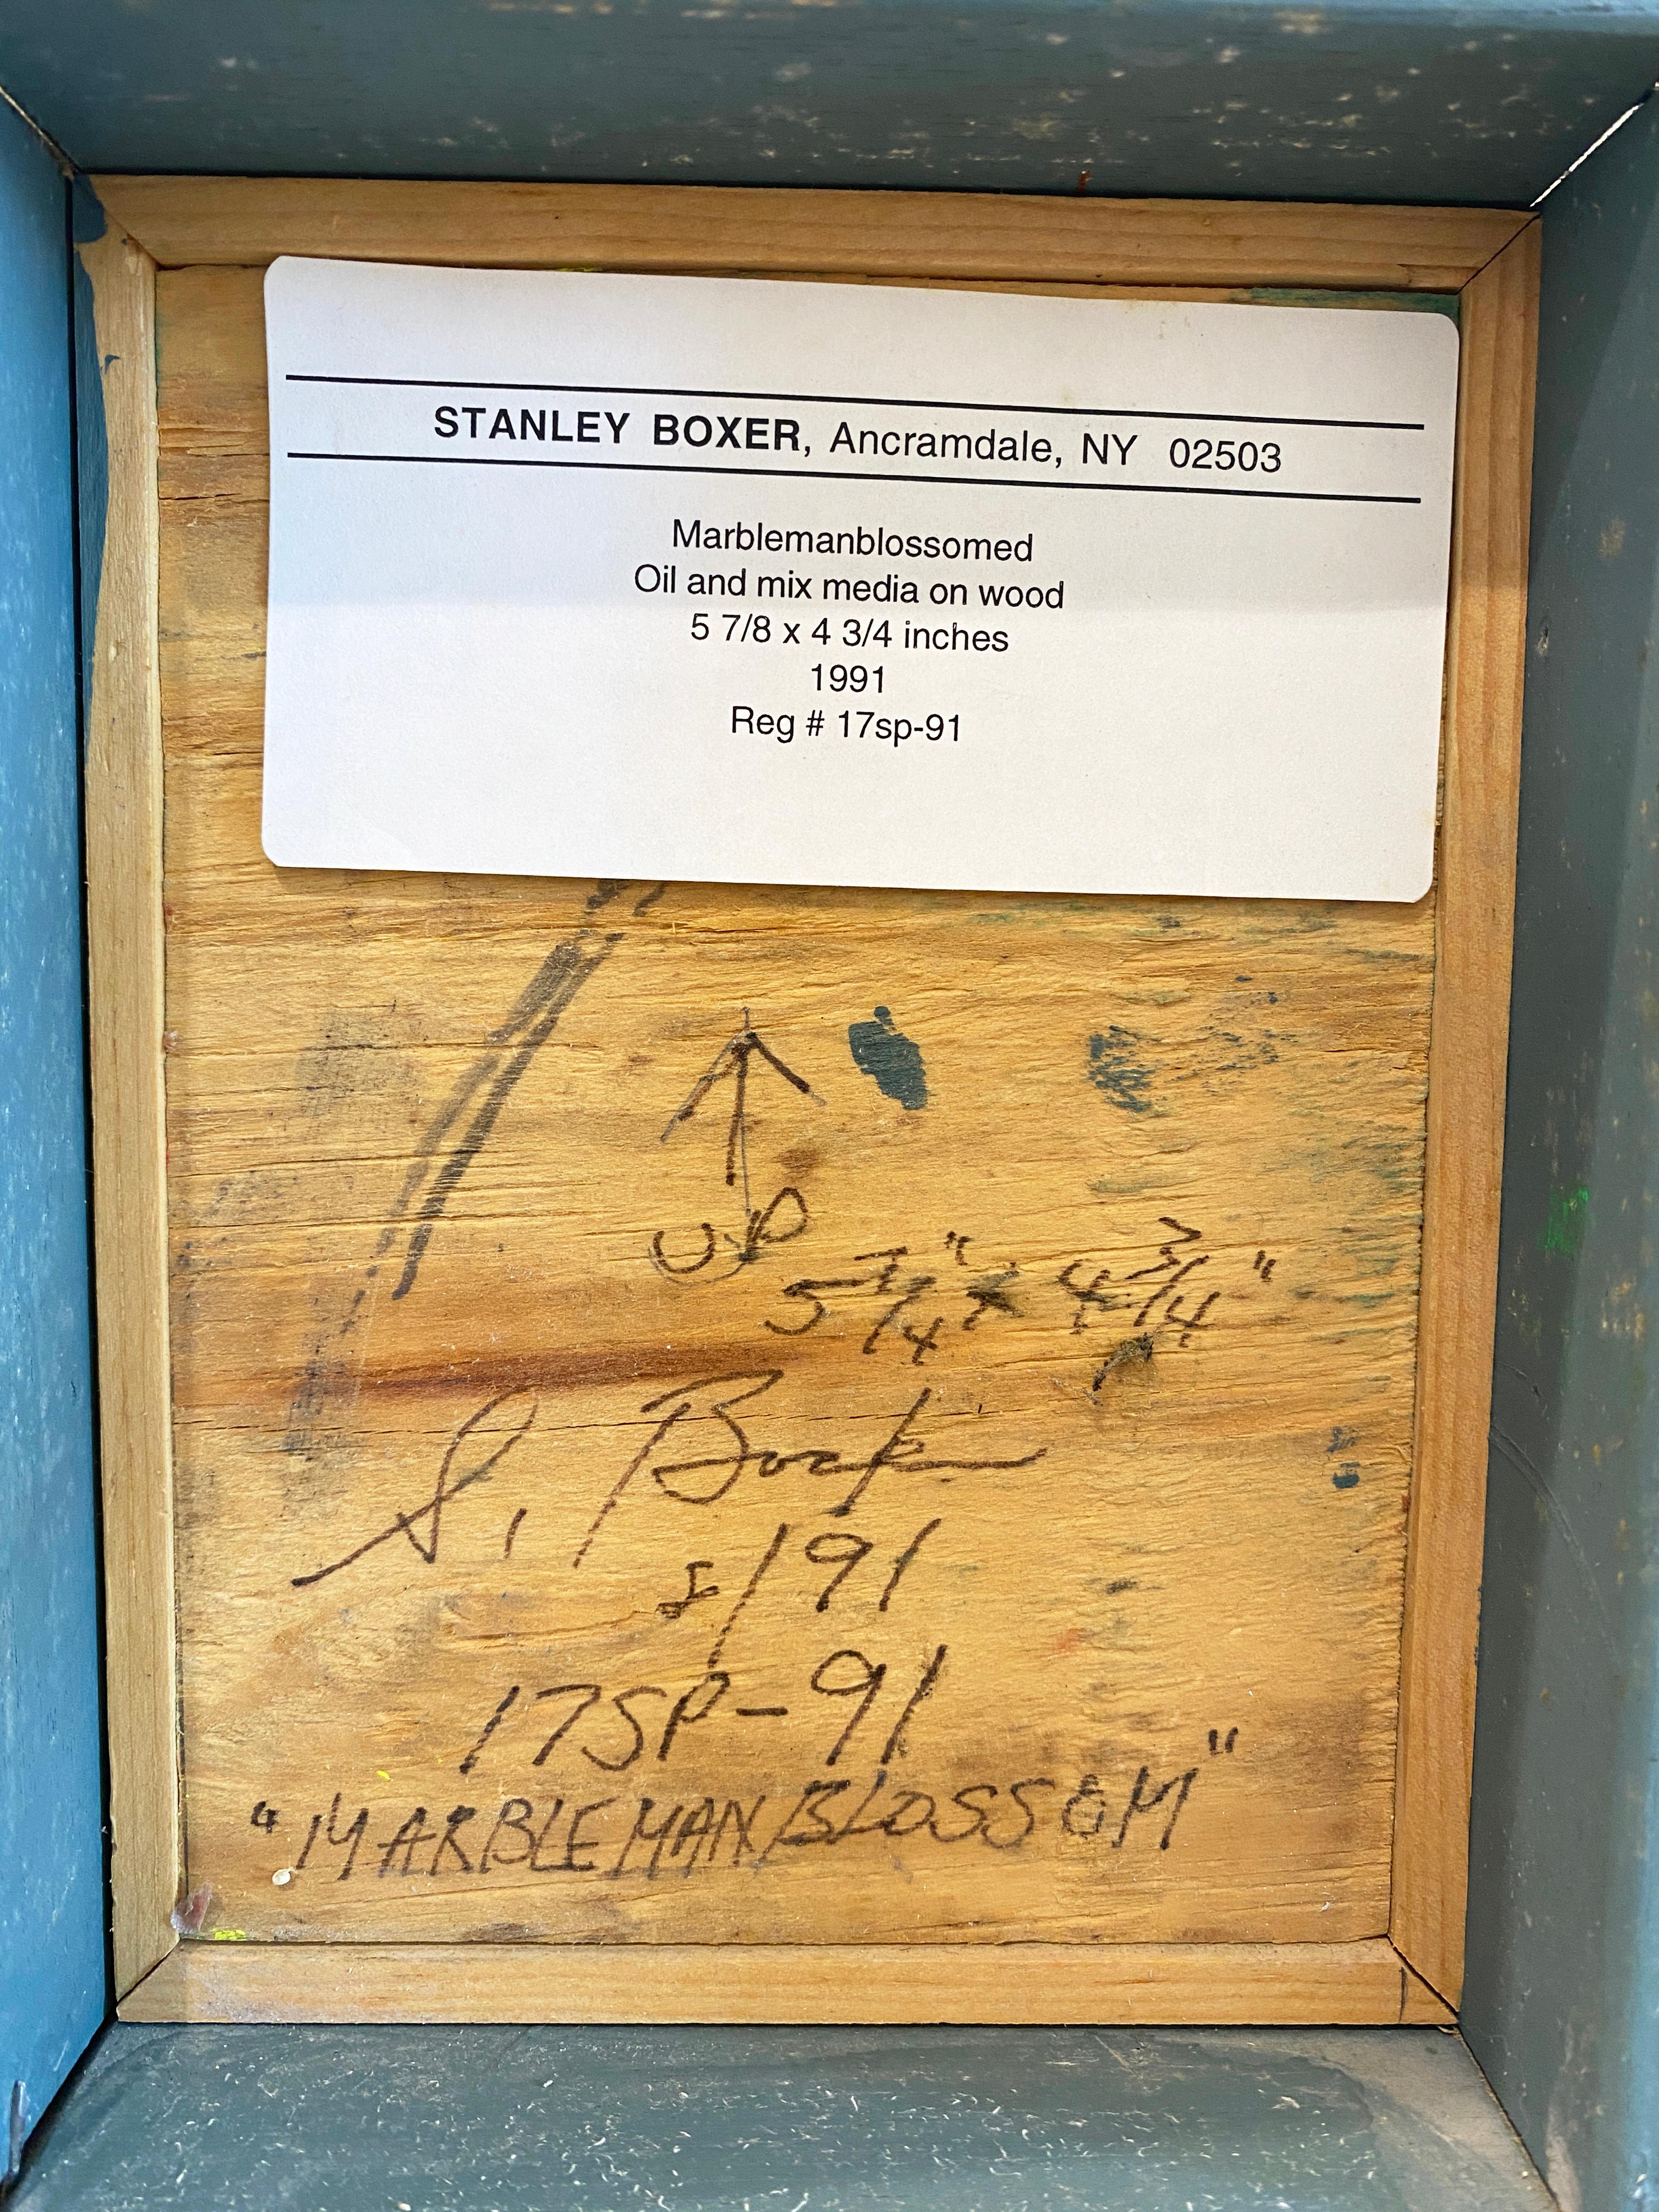 STANLEY BOXER, Ancramdale, NY 02503
Marblemanblossomed
Oil and mix media on wood
5 7/8 x 4 3/4 inches
1991
Reg # 17sp-91
UP
5 7/4" x 4 3/4"
S. Boxer
8/91
17SP-91
"MARBLEMANBLOSSOM"